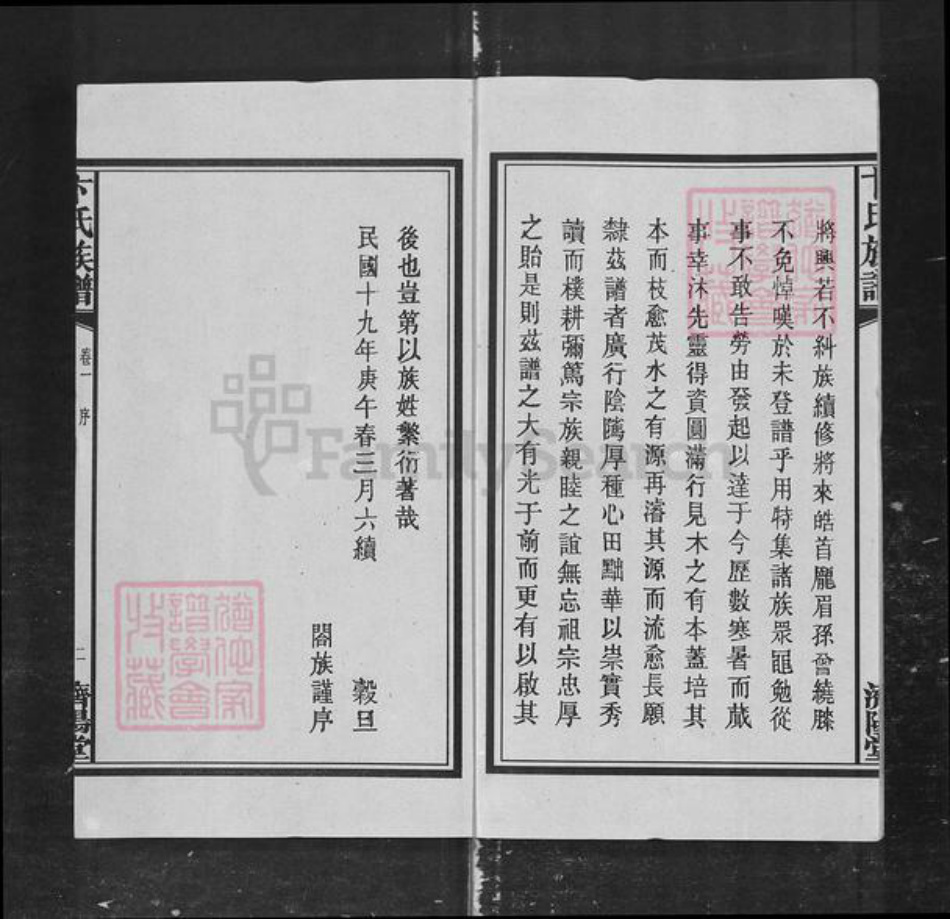 卞氏族譜
將興若不糾族續修將來皓首龐眉孫曾繞膝
不免悼嘆於未登譜乎用特集諸族眾黽勉從
事不敢告勞由發起以達于今歷數寒暑而蕆
事幸沐先靈得資圓滿行見木之有本蓋培其
本而枝愈茂水之有源再濬其源而流愈長願
隸茲譜者廣行陰隲厚種心田黜華以崇實秀
讀而樸耕彌篤宗族親睦之誼無忘祖宗忠厚
之貽是則茲譜之大有光于前而更有以啟其
後也豈第以族姓繁衍著哉
民國十九年庚午春三月六續 穀旦
闔族謹序
卞氏族譜
卷一 序
二
濟陽堂
猶他家譜學會收藏
猶他家譜學會收藏
FamilySearch